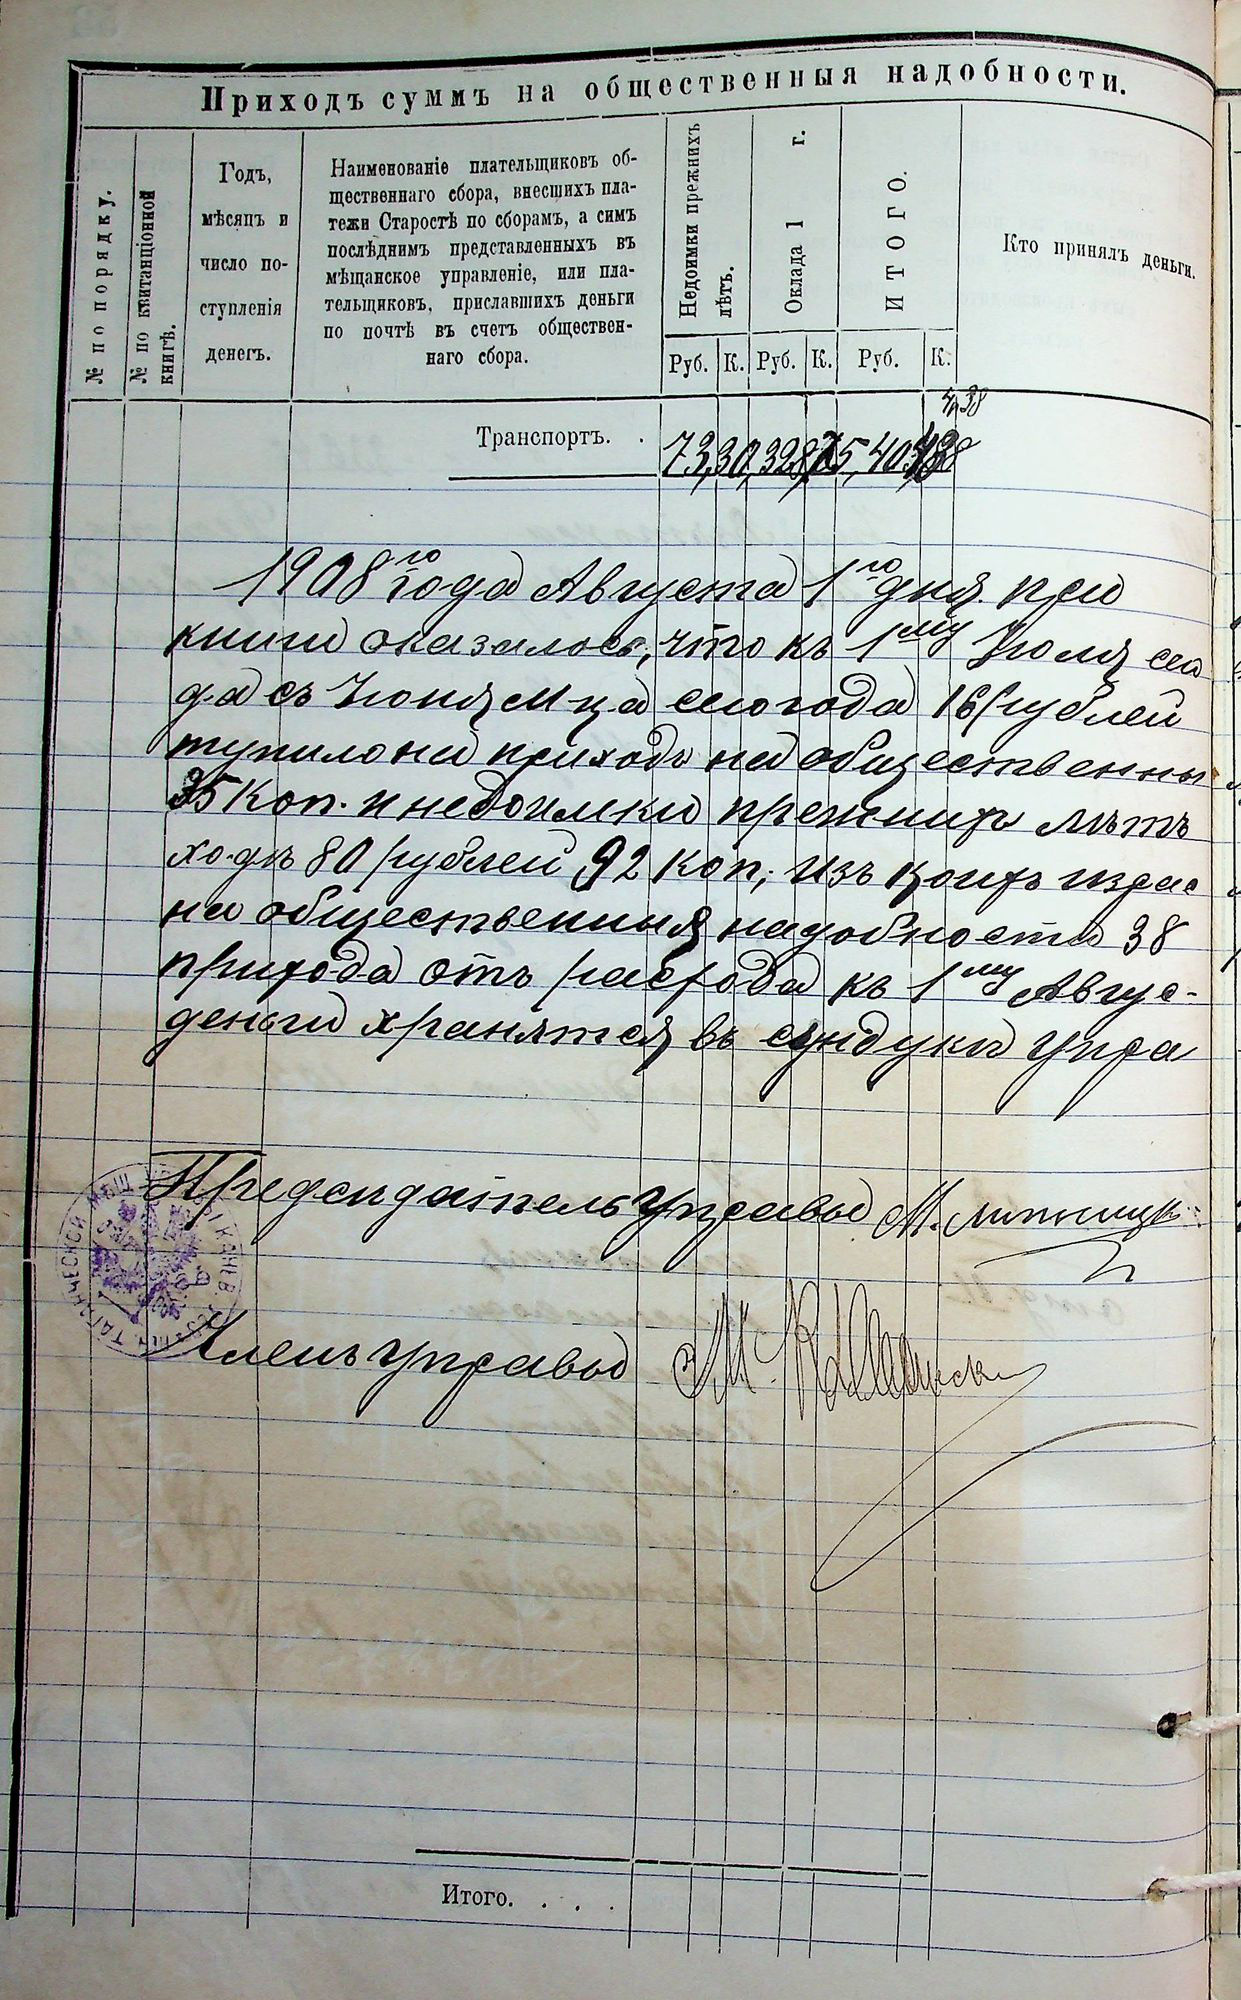 Приходъ суммъ на общественныя надобности.
№ по порядку.
№ по квитанціонной книгѣ.
Годъ,
мѣсяцъ и
число по-
ступленія
денегъ.
Наименованіе плательщиковъ об-
щественнаго сбора, внесшихъ пла-
тежи Старостѣ по сборамъ, а симъ
послѣднимъ представленныхъ въ
мѣщанское управленіе, или пла-
тельщиковъ, приславшихъ деньги
по почтѣ въ счетъ обществен-
наго сбора.
Недоимки прежнихъ лѣтъ.
Оклада 1 г.
ИТОГО.
Кто принялъ деньги.
Руб. К. Руб. К. Руб. К.
Транспортъ. .
1908го года Августа 1го дня при
книги оказалось, что къ 1му Іюля сего
да съ Іюня М ца сего года 161 рублей
тупило на приходъ на общественны
35 коп. и недоимки прежнихъ лѣтъ
ходѣ 80 рублей 92 коп, изъ коихъ израс
на общественныя надобности 38
прихода отъ расхода къ 1му Авгус-
деньги хранятся въ сундуки Упра
Председатель Управы
Членъ Управы
Итого. . . .